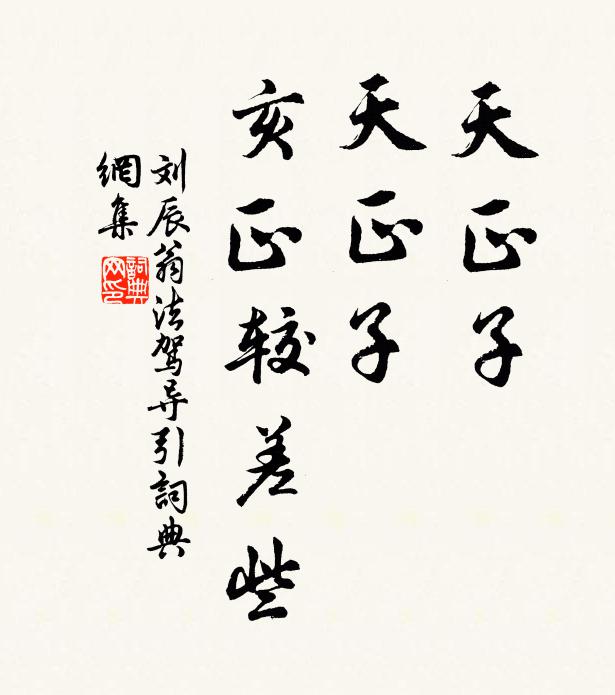 天正子
天正子
亥正较差些
刘辰翁法驾导引詞典
網集
詞典
网印